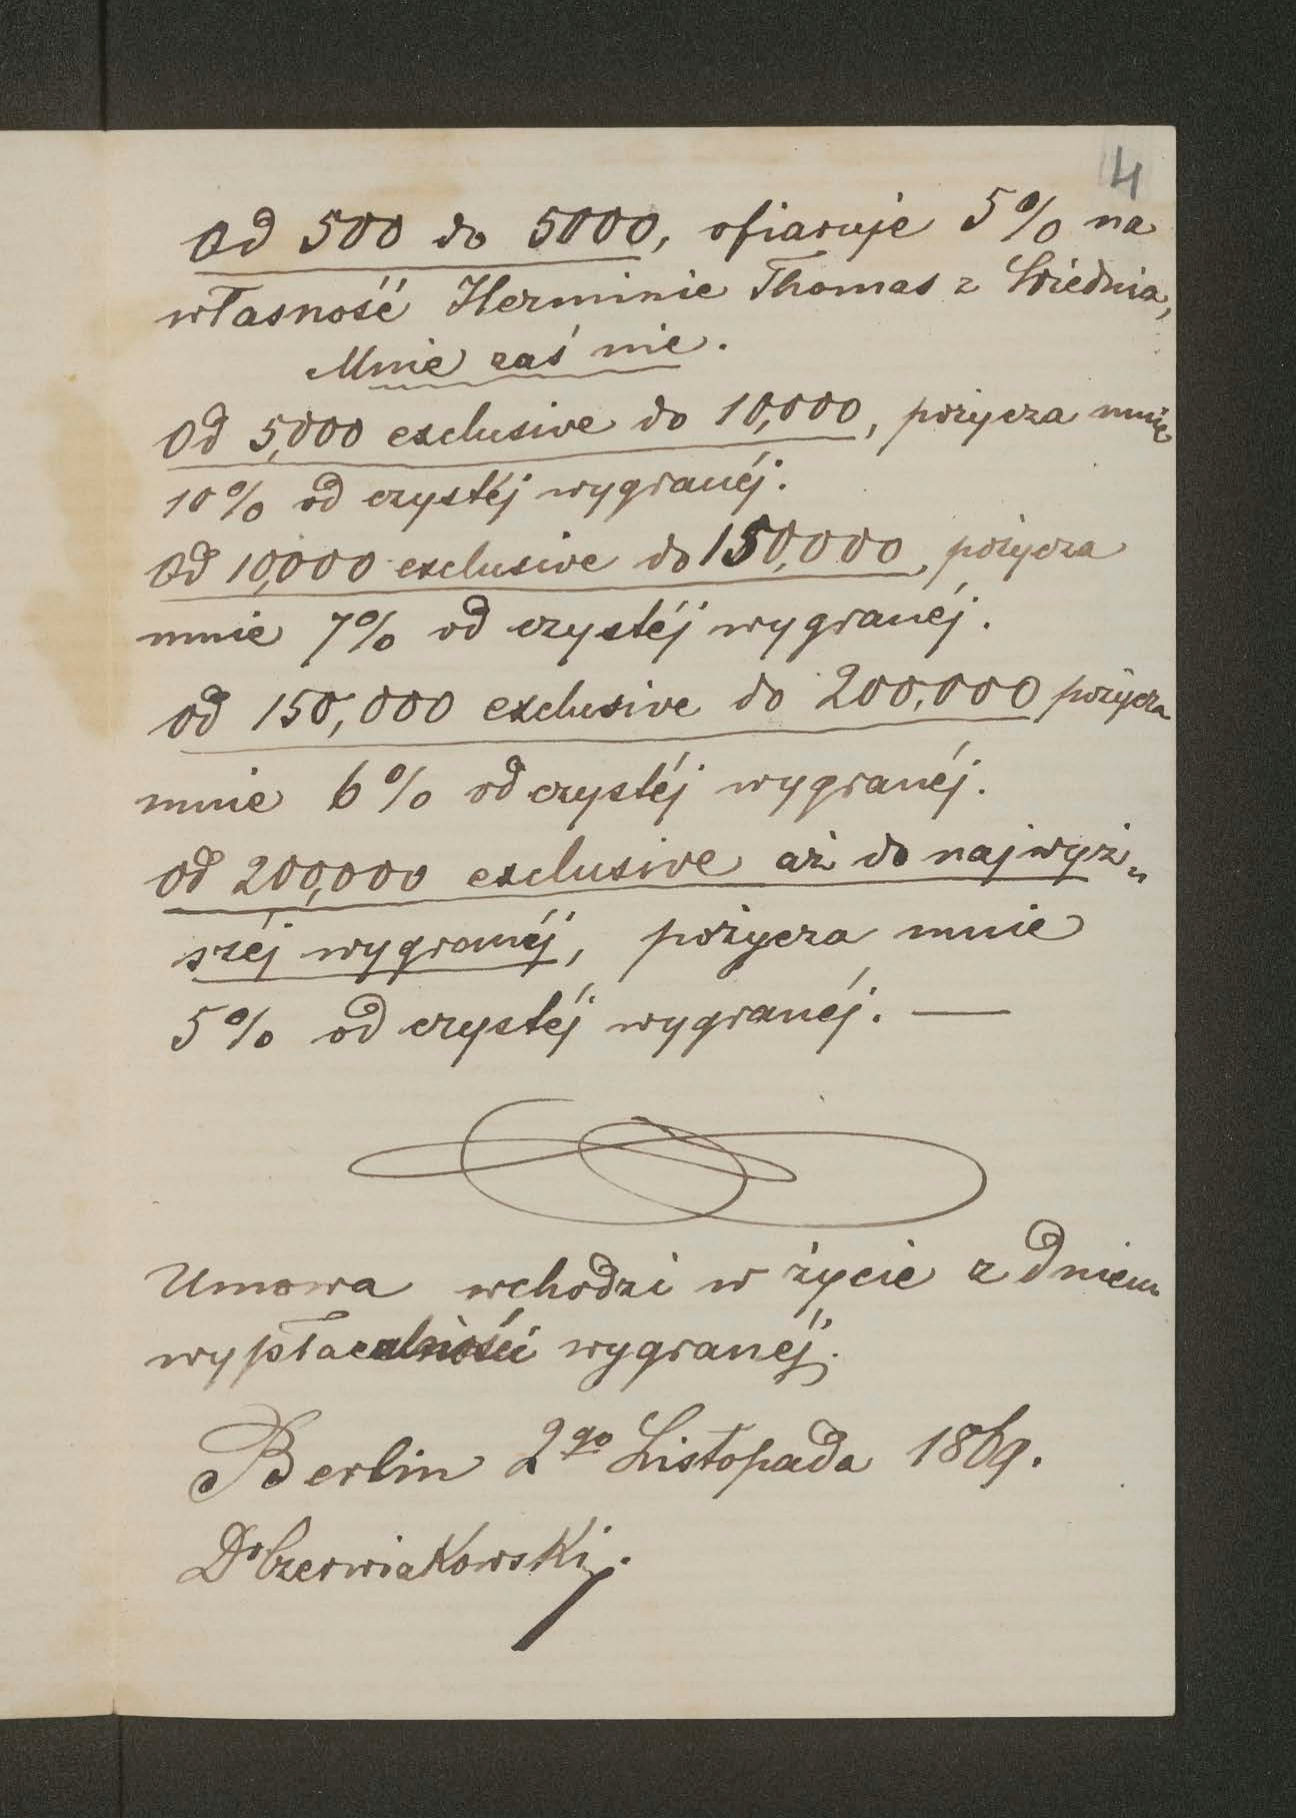 4
Od 500 do 5000, ofiaruje 5% na
własność Herminie Thomas z Wiednia,
Mnie zaś nie.
Od 5,000 exclusive do 10,000, pożycza mnie
10% od czystéj wygranéj.
Od 10,000 exclusive do 150,000, pożycza
mnie 7% od czystéj wygranéj.
od 150,000 exclusive do 200,000 pożycza
mnie 6% od czystéj wygranéj.
od 200,000 exclusive aż do najwyż„
széj wygranéj, pożycza mnie
5% od czystéj wygranéj. —
Umowa wchodzi w życie z dniem
wypłacalności wygranéj.
Berlin 2go Listopada 1869.
Dr Czerwiakowski.